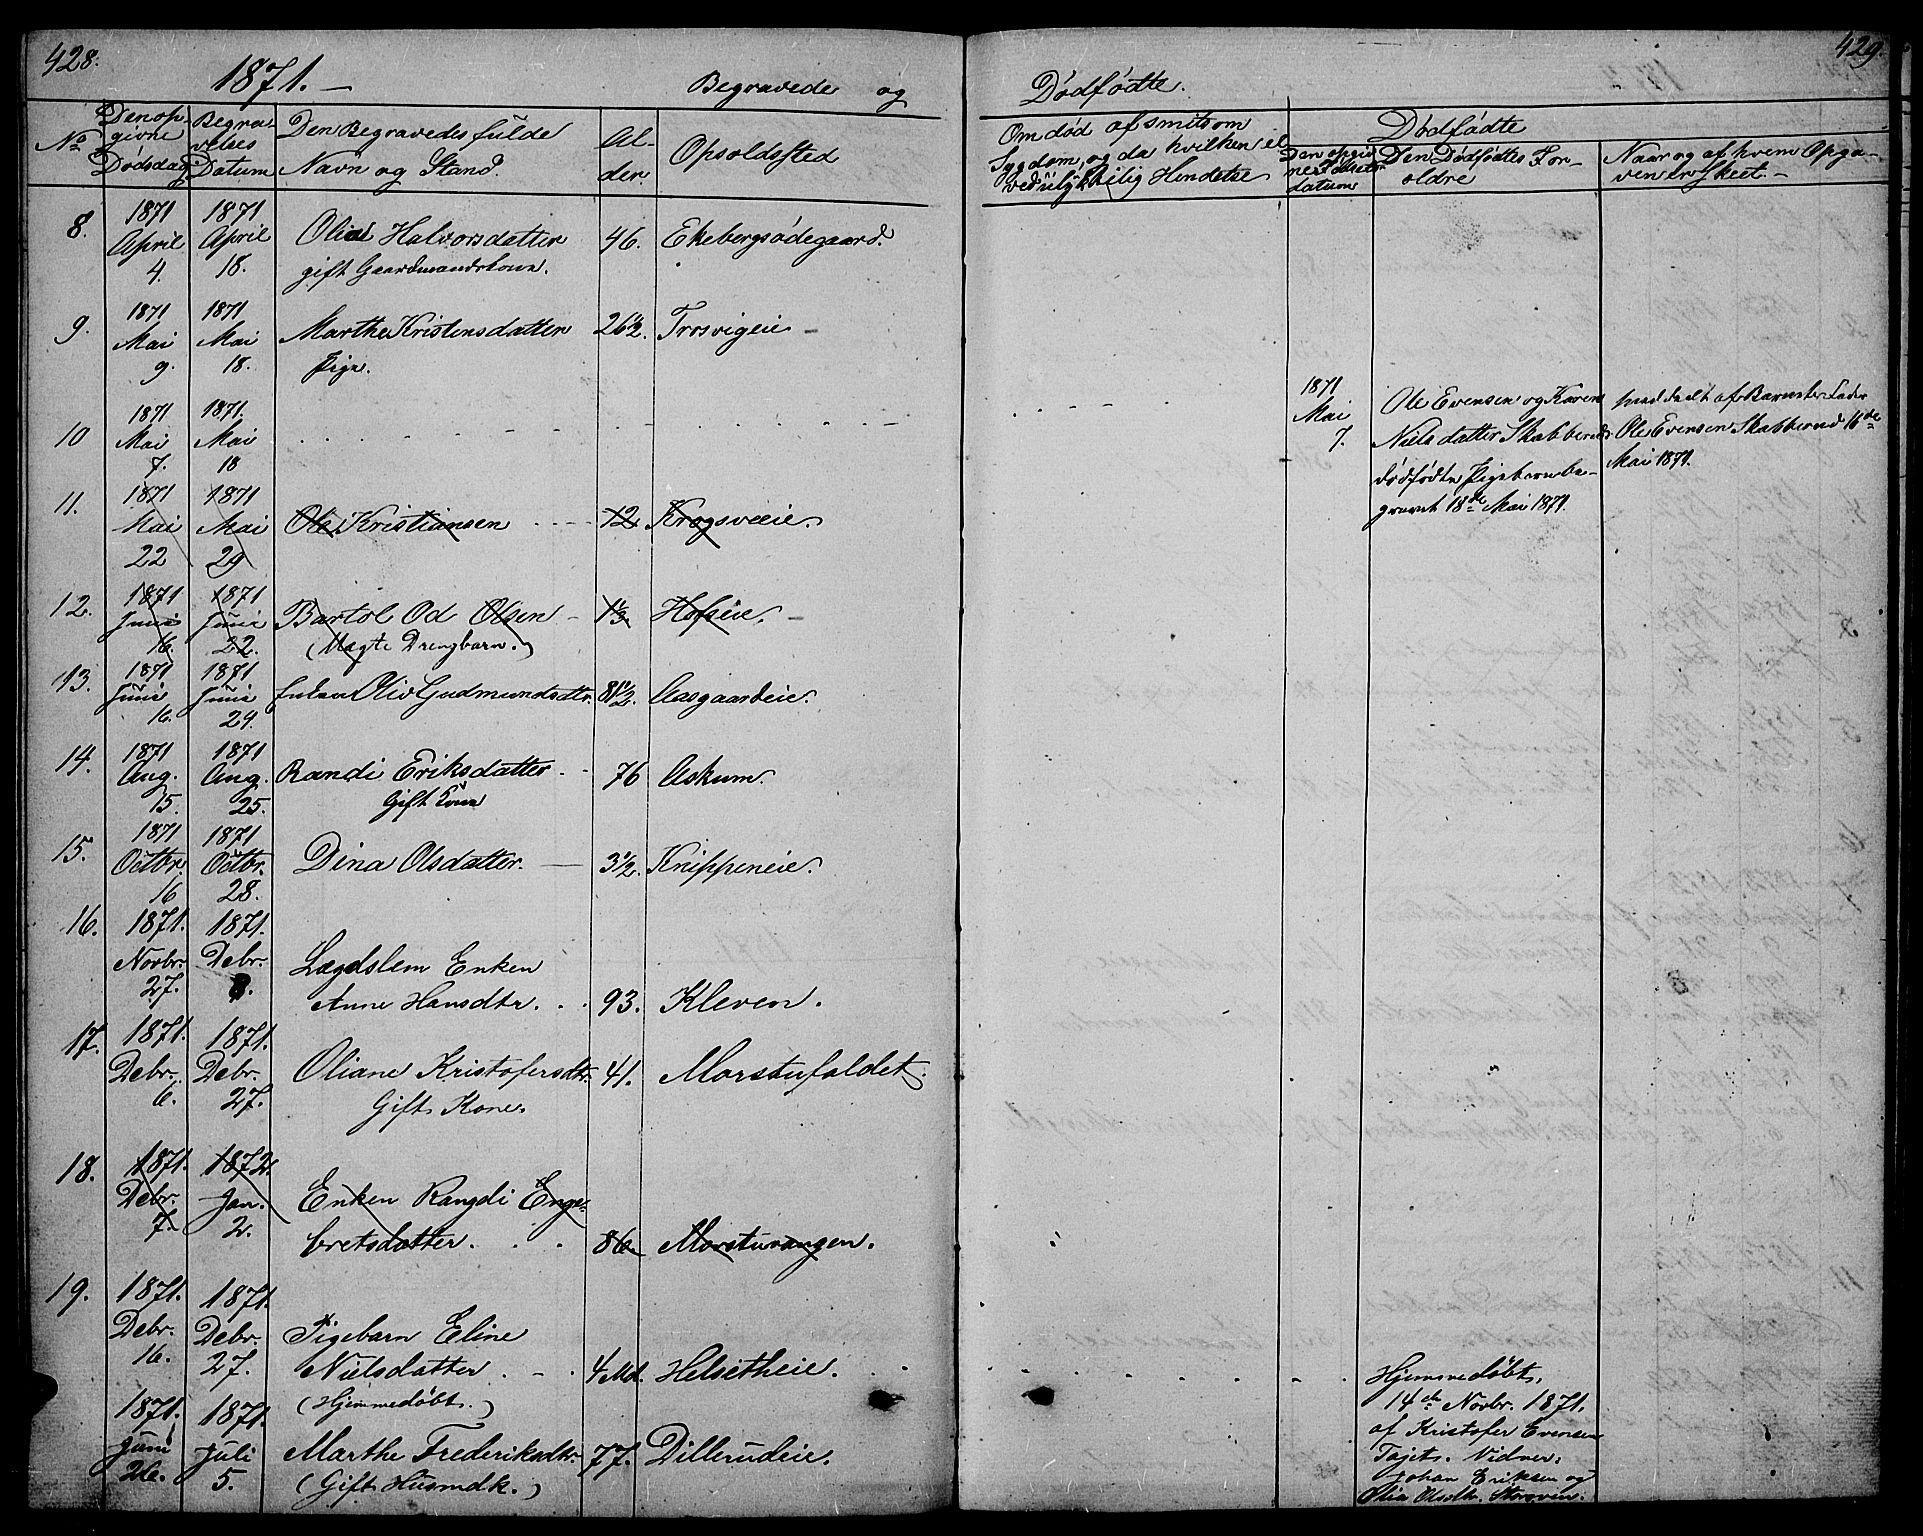 428.
1871. —
Begravede og
No
Den op-
givne
Dødsdag.
Begra-
velses
Datum
Den Begravedes fulde
Navn og Stand.
Al-
der.
Opholdssted
8.
1871
April
4.
1871
April
18.
Olia Halvorsdatter
gift Gaardmandskone.
46.
Ekebergsødegaard.
9.
1871
Mai
9.
1871
Mai
18.
Marthe Kristensdatter
Pige.
26½.
Trosvigeie
10
1871
Mai
7.
1871.
Mai
18
11.
1871
Mai
22
1871
Mai
29
Ole Kristiansen
12
Krogsveeie.
12.
1871
Juni
16.
1871
Juni
22.
Bartol Od Olsen
(Uægte Drengbarn.)
Hofseie.
13.
1871
Juni
16.
1871
Juni
24.
Enken Oliv Gudmundsdtr.
81½.
Aasgaardeie.
14.
1871
Aug.
15.
1871
Aug.
25.
Randi Eriksdatter
Gift Kone
76
Askum.
15.
1871
Octbr.
16
1871
Octbr.
28.
Dina Olsdatter.
3½.
Knippeneie.
16.
1871.
Novbr.
27.
1871.
Debr.
8.
Lægdslem Enken
Anne Hansdtr.
93.
Kleven.
17.
1871.
Debr.
6.
1871.
Debr.
27.
Oliane Kristofersdtr.
Gift Kone.
41.
Morstufaldet.
18.
1871.
Debr.
7.
1872.
Jan.
2.
Enken Rangdi Enge-
bretsdatter.
86.
Morsturangen.
19.
1871.
Debr.
16.
1871.
Debr.
27.
Pigebarn Eline
Nielsdatter
(Hjemmedøbt.)
4 Md.
Helsetheie.
1871.
Juni
26.
1871.
Juli
5.
Marthe Frederiksdtr.
(Gift Husmdk.)
77.
Dillerudeie.
429.
Dødfødte.
Om død af smitsom
Sygdom, og da hvilken, el
ved ulykkelig Hendelse
Dødfødte
Den opgiv
ne Fødsels-
datum
Den Dødfødtes For-
ældre
Naar og af hvem Opga-
ven er skeet.
1871
Mai
7.
Ole Evensen og Karen
Nielsdatter Skabberuds
dødfødte Pigebarn be-
gravet 18de Mai 1871.
meddeelt af Barnets Fader
Ole Evensen Skabberud 16de
Mai 1871.
Hjemmedøbt.
14de Novbr. 1871.
af Kristofer Evensen
Vidner:
Johan Eriksen og
Olia Olsdtr.